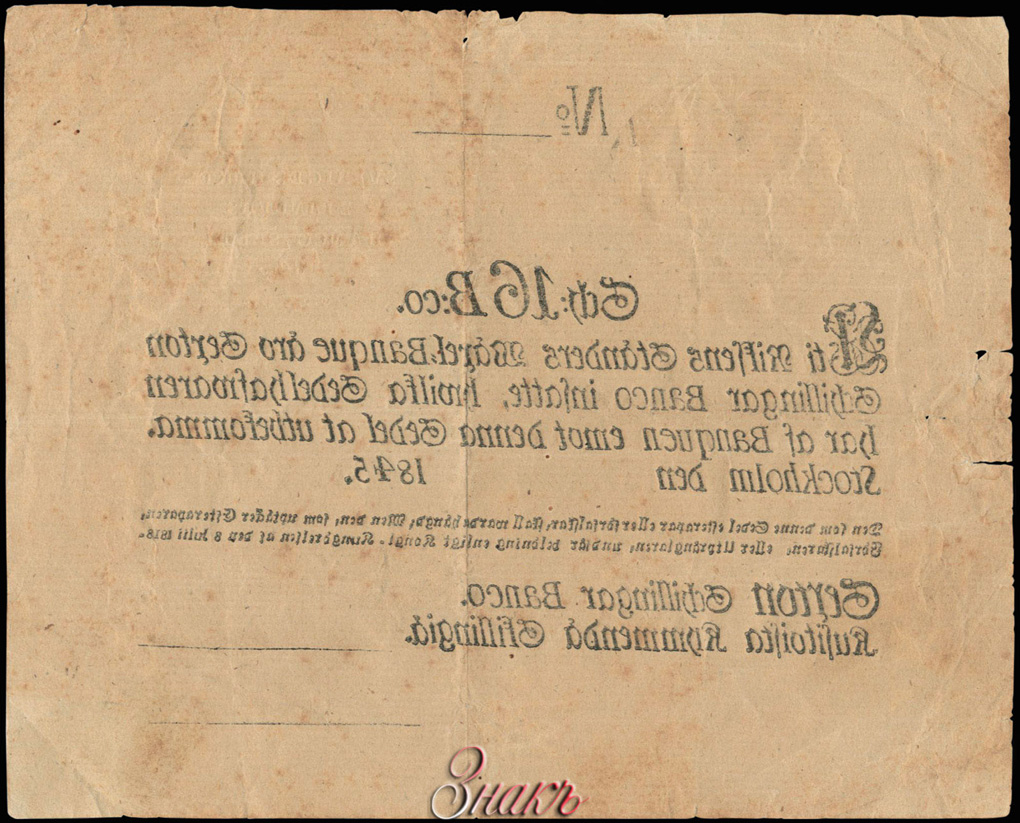 No
Sch: 16 B:co.
Uti Riksens Ständers Wäxel-Banque äro Sexton
Schillingar Banco insatte, hwilka Sedelhafwaren
har af Banquen emot denna Sedel at utbekomma.
Stockholm den 1845.
Den som denne Sedel efterapar eller förfalskar, skall warda hängd; Men den, som uptäcker Efteraparen,
Förfalskaren, eller Utprånglaren, undfår belöning enligt Kongl. Kungörelsen af den 8 Julii 1818.
Sexton Schillingar Banco.
Kusitoista Kymmendä Skillingiä.
Знакъ